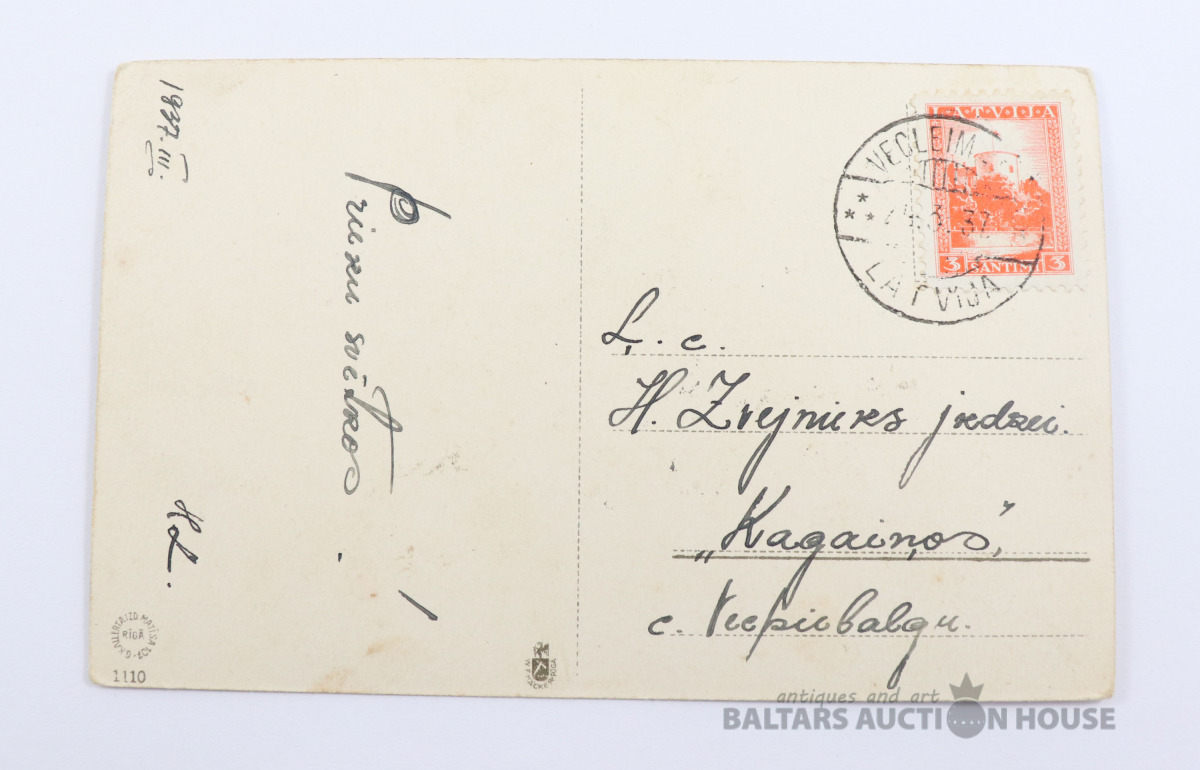 1937. III.
Prieku svētkos!
H L.
RĪGĀ
1110
LATVIJA
3 SANTIMI 3
VECLEIM
LATVIJA
Ļ. c.
H. Zvejnieks jkdzei.
„Kagaiņos",
c. Vecpiebalgu.
antiques and art
BALTARS AUCTION HOUSE